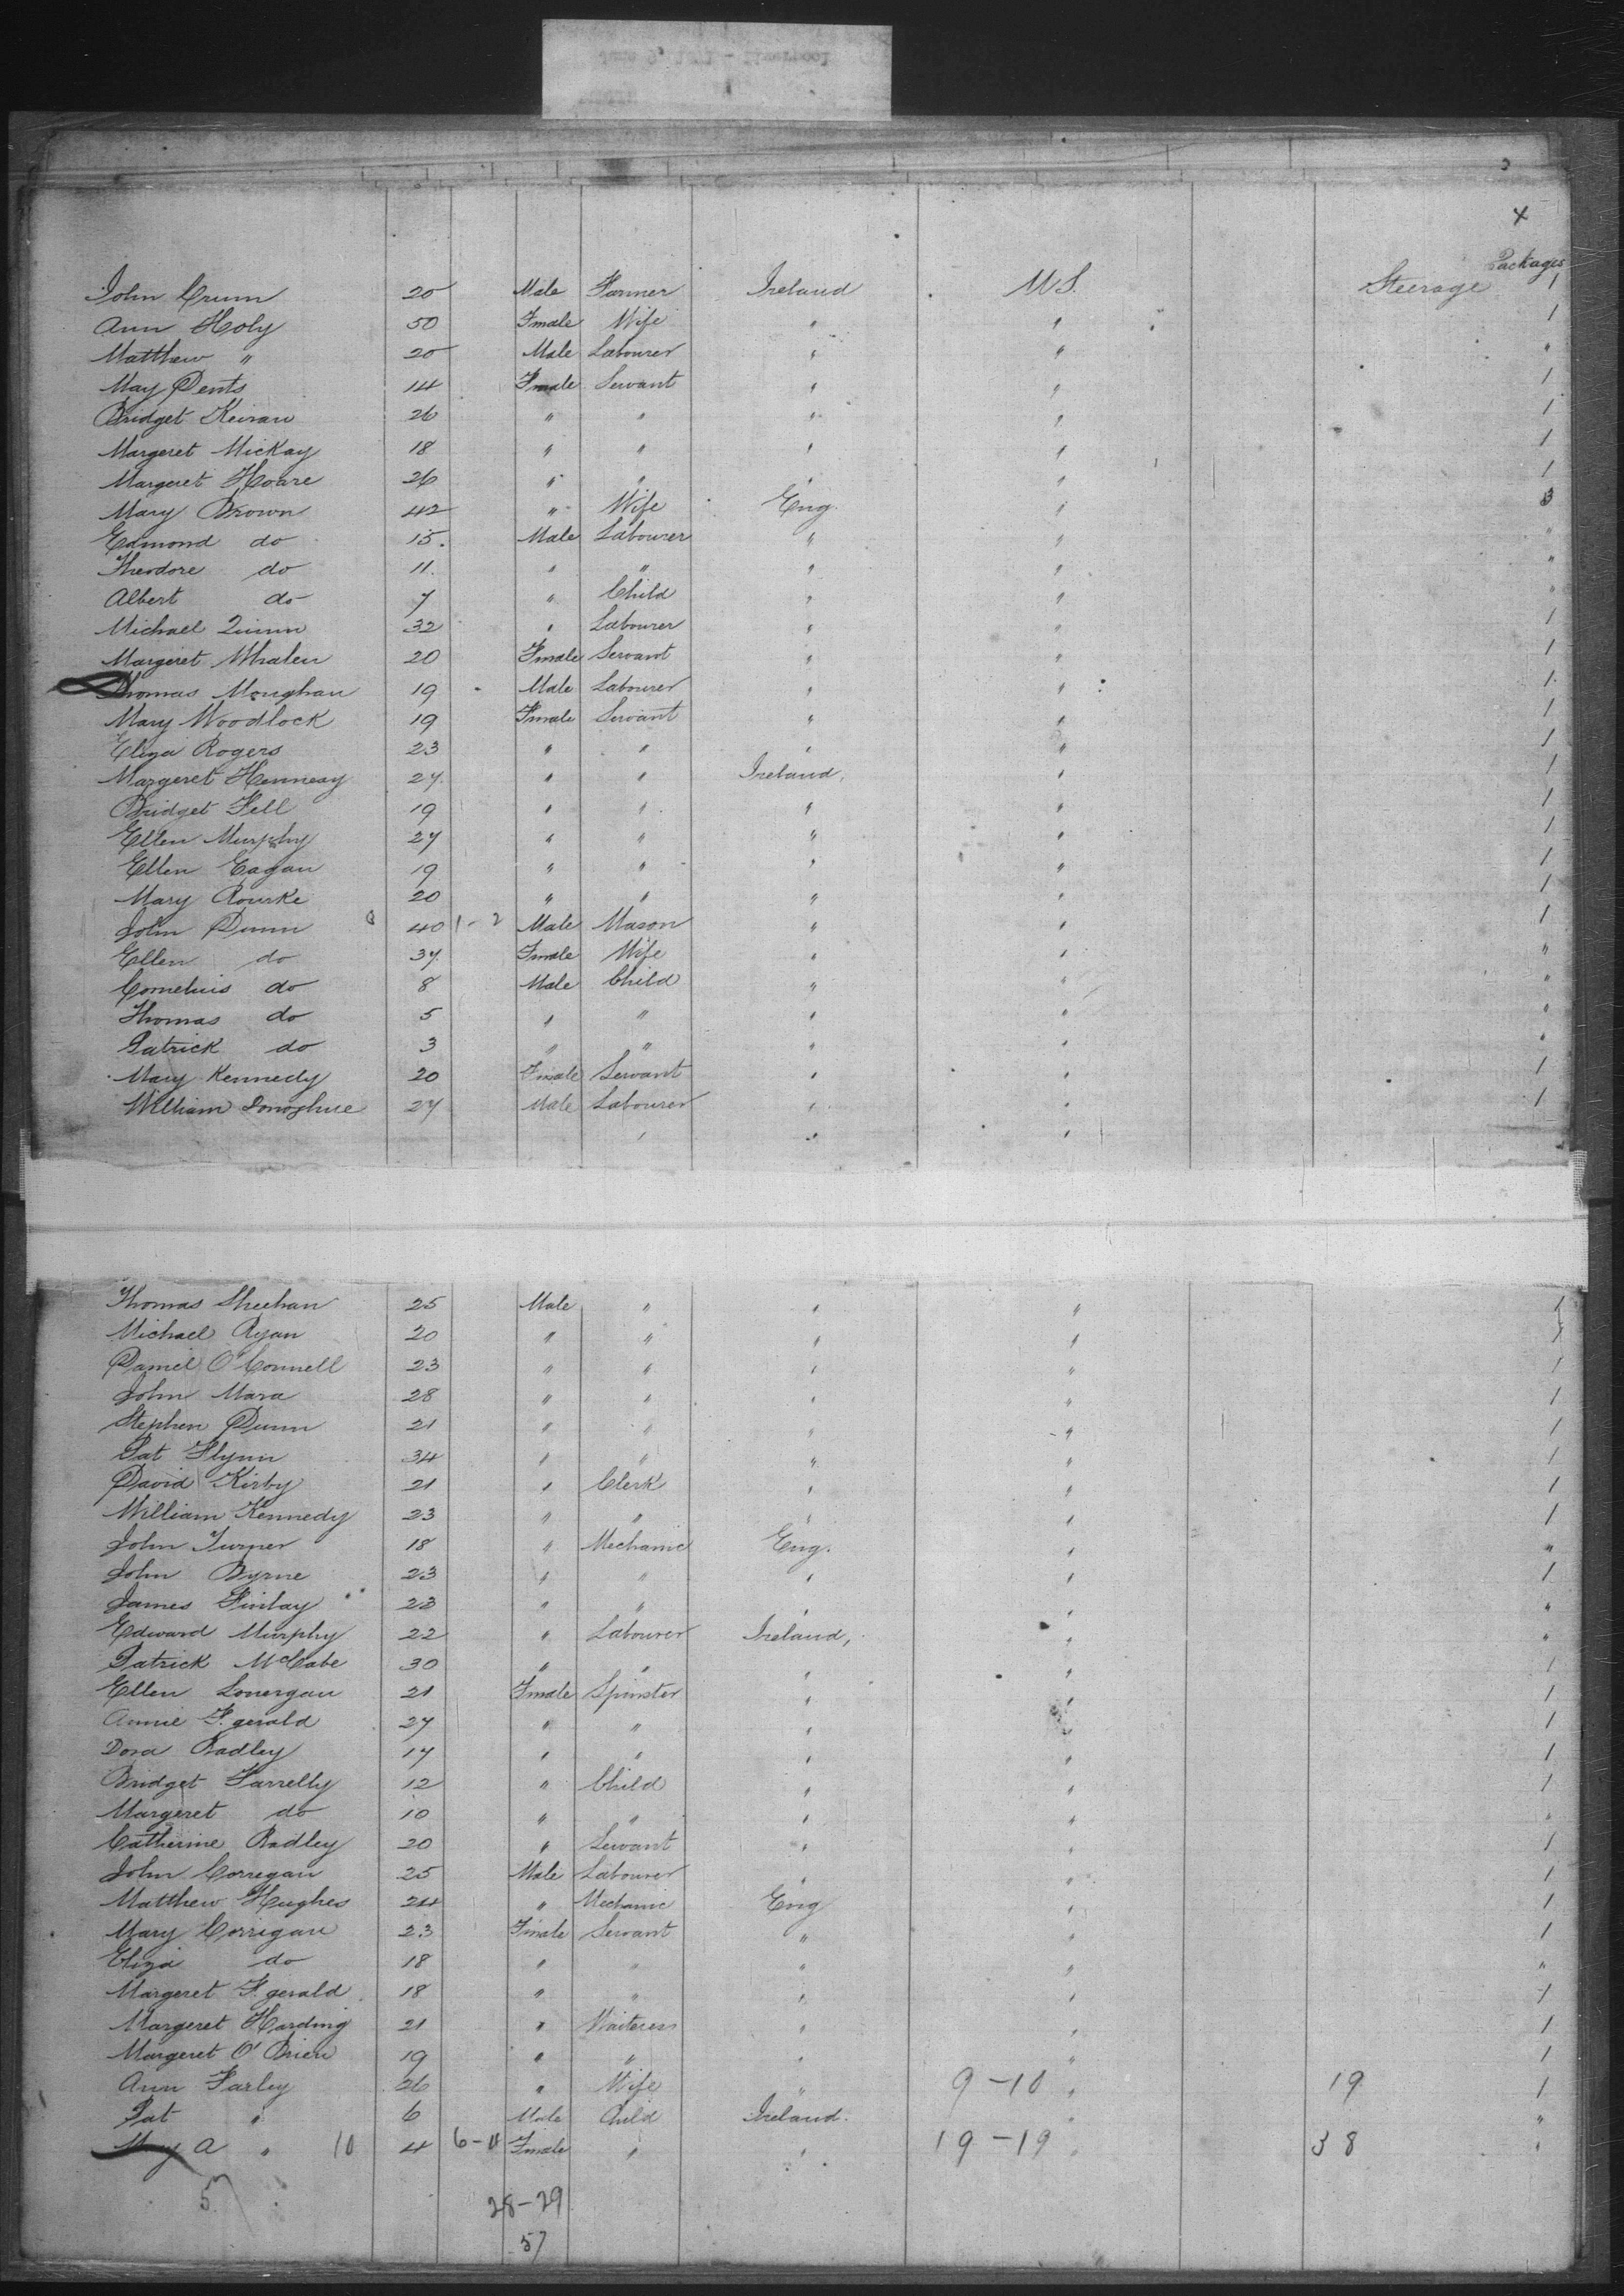 4
Packages
John Crunn 20 Male Farmer Ireland U S. Steerage 1
Ann Holy 50 Fmale Wife " " 1
Matthew " 20 Male Labourer " " "
May Dents 14 Fmale Servant " " 1
Bridget Keiran 26 " " " " 1
Margeret Mickay 18 " " " " 1
Margeret Hoare 26 " " " " 1
Mary Brown 42 " Wife Eng. " 3
Edmond do 15. Male Labourer " " "
Theodore do 11. " " " " "
Albert do 7 " Child " " "
Michael Quinn 32 " Labourer " " 1
Margeret Whalen 20 Fmale Servant " " 1
Thomas Monghan 19 Male Labourer " " 1
Mary Woodlock 19 Fmale Servant " " 1
Eliza Rogers 23 " " " " 1
Margeret Hennesy 27 " " Ireland, " 1
Bridget Fell 19 " " " " 1
Ellen Murphy 27 " " " " 1
Ellen Eagan 19 " " " " 1
Mary Rourke 20 " " " " 1
John Dunn 40 1-2 Male Mason " " 1
Ellen do 37 Fmale Wife " " "
Cornelius do 8 Male Child " " "
Thomas do 5 " " " " "
Patrick do 3 " " " " "
Mary Kennedy 20 Fmale Servant " " 1
William Donoghue 27 Male Labourer " " 1
" " "
Thomas Sheehan 25 Male " " " 1
Michael Ryan 20 " " " " 1
Daniel O'Connell 23 " " " " 1
John Mara 28 " " " " 1
Stephen Dunn 21 " " " " 1
Pat Flynn 34 " " " " 1
David Kirby 21 " Clerk " " 1
William Kennedy 23 " " " " 1
John Turner 18 " Mechanic Eng. " "
John Byrne 23 " " " " 1
James Finlay 23 " " " " "
Edward Murphy 22 " Labourer Ireland, " "
Patrick McCabe 30 " " " " 1
Ellen Lonergan 21 Fmale Spinster " " 1
Annie F.gerald 27 " " " " 1
Dora Radley 17 " " " " 1
Bridget Farrelly 12 " Child " " 1
Margeret do 10 " " " " "
Catherine Radley 20 " Servant " " 1
John Corregan 25 Male Labourer " " 1
Matthew Hughes 24 " Mechanic Eng " 1
Mary Corrigan 23 Fmale Servant " " 1
Eliza do 18 " " " " "
Margeret F.gerald 18 " " " " 1
Margeret Harding 21 " Waiteress " " 1
Margeret O'Brien 19 " " " " 1
Ann Farley 26 " Wife " 9-10 " 19 1
Pat " 6 Male Child Ireland. " "
A " 10 4 6-4 Fmale " " 19-19 " 38 "
57
28-29
57